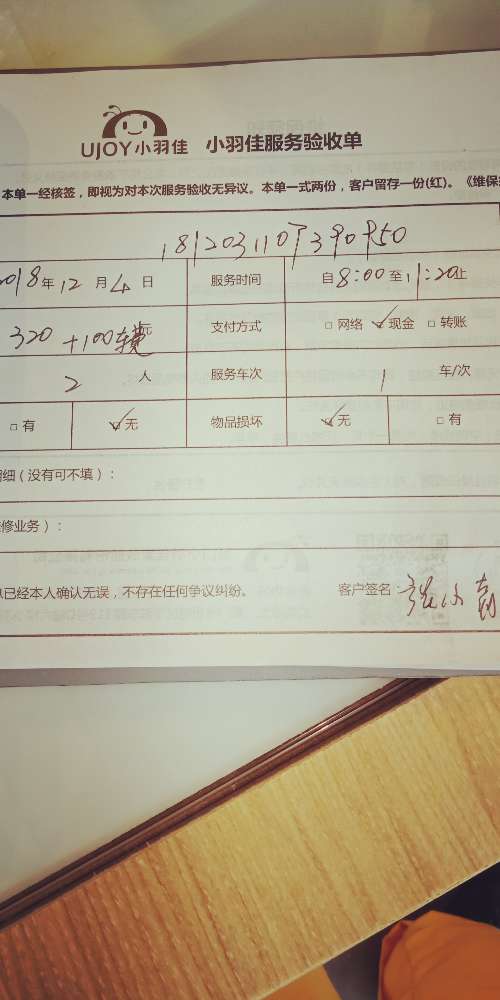 UJOY小羽佳 小羽佳服务验收单
本单一经核签，即视为对本次服务验收无异议。本单一式两份，客户留存一份(红)。《维保
1812031107390850
2018年12月4日 服务时间 自8:00至11:20止
320+100车费 支付方式 □网络 ✓现金 □转账
2人 服务车次 1车/次
□有 ✓无 物品损坏 ✓无 □有
细（没有可不填）：
修业务）：
已经本人确认无误，不存在任何争议纠纷。 客户签名：